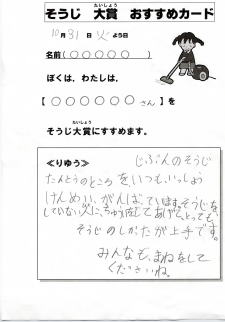 そうじ 大賞 おすすめカード
たいしょう
10月31日火よう日
名前(○○○○○)
ぼくは、わたしは、
【○○○○○○さん】を
たいしょう
そうじ大賞にすすめます。
≪りゆう≫
じぶんのそうじ
たんとうのところをいつも、いっしょう
けんめい、がんばっています。そうじを
していない人に、ちゅういしてあげて、とっても、
そうじのしかたが上手です。
みんなも、まねをして
くださいね。